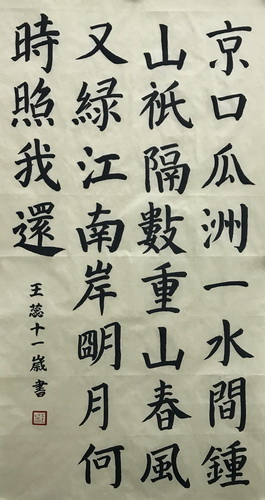 京口瓜洲一水間鍾
山祇隔數重山春風
又綠江南岸朙月何
時照我還
王蕊十一歲書